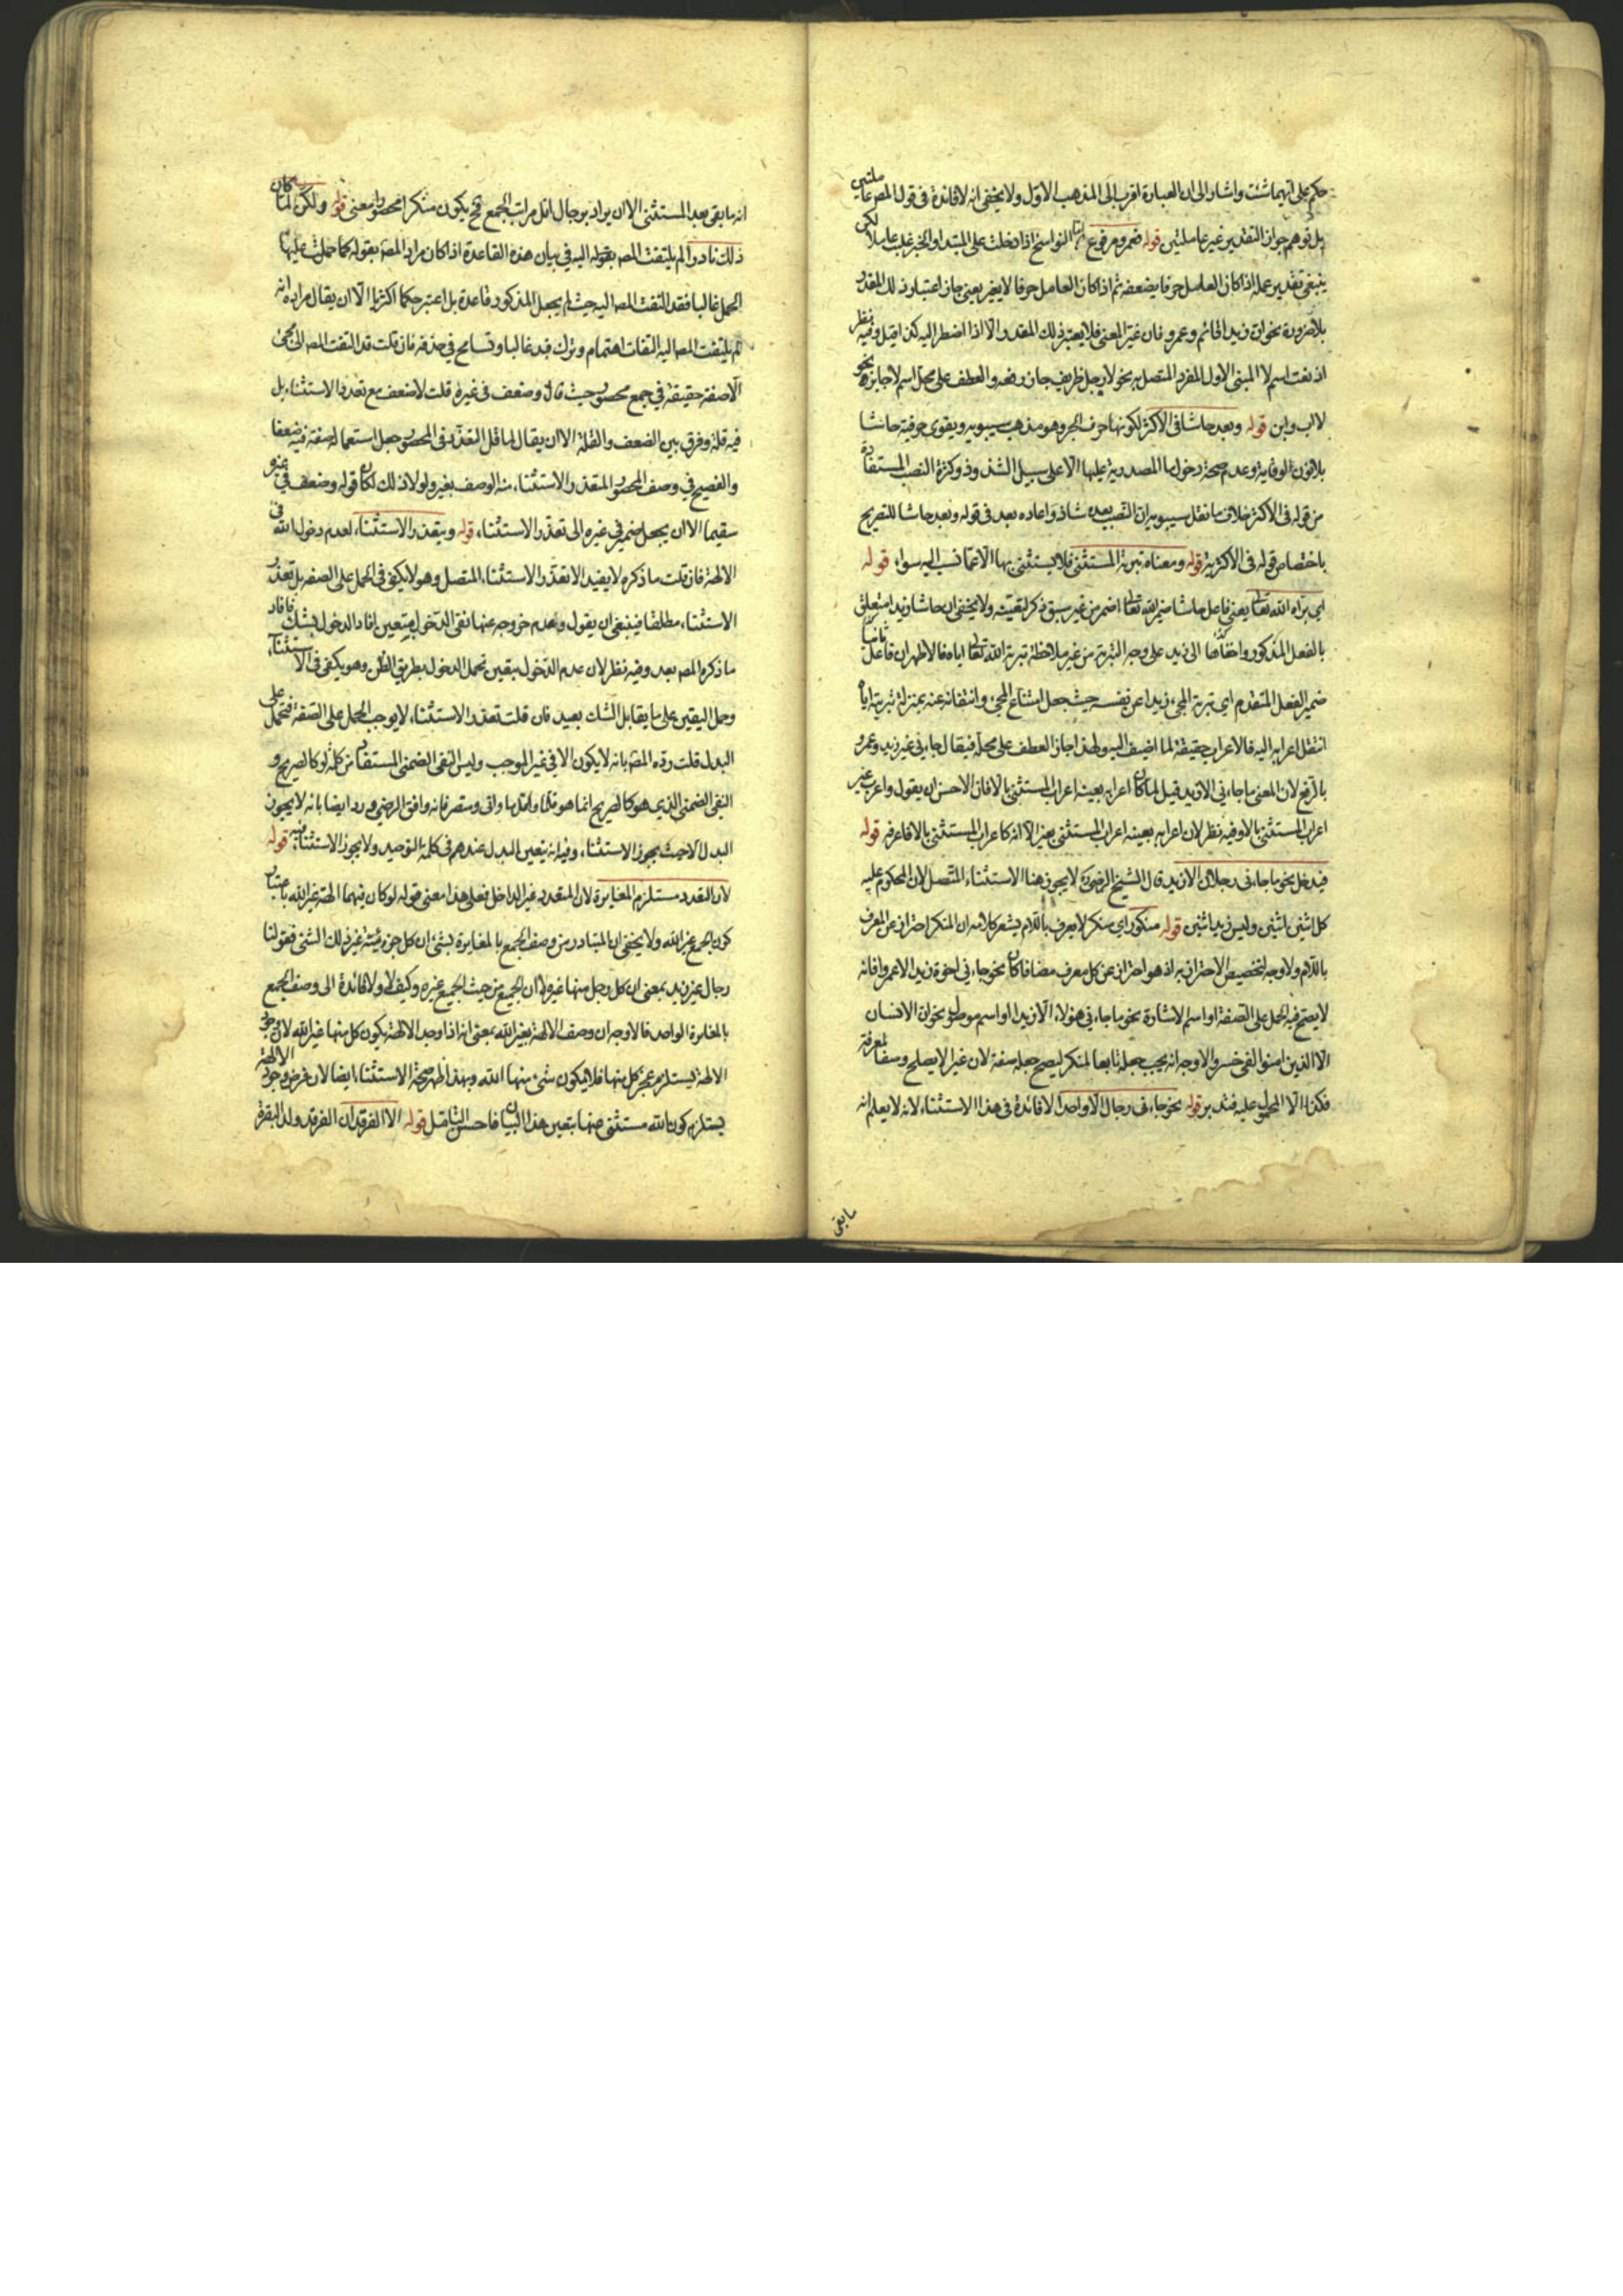 حكم على ايهما شئت واشار الى ان العبارة اقرب الى المذهب الاول ولا يخفى انه لا فائدة فى قول المص عاملتين
بل توهم جواز التقديرين غير عاملتين قوله فعمرو مرفوع النواسخ اذا دخلت على المبتدا والخبر عاملا لكن
ينبغى تقدير عمله اذا كان العامل حرفا يضعفه ثم اذا كان العامل حرفا لا يغير يعنى جاز اعتبار ذلك المقدر
بلا ضرورة نحو ان زيدا قائم وعمرو فان غير المعنى فلا يعتبر ذلك المقدر الا اذا اضطر اليه كذا قيل وفيه نظر
اذ نعت اسم لا المبنى الاول المفرد المتصل به نحو لا رجل ظريف جاز رفعه والعطف على محل اسم لا جائز نحو
لا اب وابن قوله وبعد حاشا فى الاكثر لكونها حرف الجر وهو مذهب سيبويه ويقوى حرفية حاشا
بلا نون الوقاية وعدم صحة دخول ما المصدرية عليها الا على سبيل الشذوذ وكثرة النصب المستفادة
من قوله فى الاكثر خلاف ما نقل سيبويه ان النصب بعده شاذ واعاده بعد فى قوله وبعد حاشا للتصريح
باختصاص قوله فى الاكثر به قوله ومعناه تبرية المستثنى فلا يستثنى بها الا عما نسب اليه سوء قوله
اى براه الله تعالى يعنى فاعل حاشا ضمير الله تعالى اضمر من غير سبق ذكر لتعينه ولا يخفى ان حاشا زيدا متعلق
بالفعل المذكور الى زيد على وجه التبرية من غير ملاحظة تبرية الله تعالى اياه فالاظهر ان فاعل
ضمير الفعل المتقدم اى تبرية المجىء زيدا عن نفسه حيث جعل امتناع المجىء وانتفائه عنه بمنزلة تبريته اياه
انتقل اعرابه اليه فالاعراب حقيقة لما اضيف اليه ولهذا جاز العطف على محله فيقال جاءنى غير زيد وعمرو
بالرفع لان المعنى ما جاءنى الا زيد قيل لما كان اعرابه بعينه اعراب المستثنى بالا فان الاحسن ان يقول واعرب غير
اعراب المستثنى بالا وفيه نظر لان اعرابه بعينه اعراب المستثنى بغير الا انه كاعراب المستثنى بالا فاعرفه قوله
فيدخل نحو ما جاءنى رجلان الا زيد قال الشيخ الرضى لا يجوز هنا الاستثناء المتصل لان المحكوم عليه
كل اثنين اثنين وليس زيد اثنين قوله منكور اى منكر لا يعرف باللام يشعر كلامه ان المنكر احتراز عن المعرف
باللام ولا وجه لتخصيص الاحتراز به اذ هو احتراز عن كل معرف مضافا كان نحو جاءنى اخوة زيد الا عمروا فانه
لا يصح فيه الحمل على الصفة او اسم الاشارة نحو ما جاءنى هؤلاء الا زيدا او اسم موصول نحو ان الانسان
الا الذين امنوا لفى خسر والاوجه انه يجب جعله تابعا لمنكر ليصح جعله صفة لان غير لا يصلح وصفا لمعرفة
فكذا الا المحمول عليه فتدبر قوله نحو جاءنى رجال الا واحدا لا فائدة فى هذا الاستثناء لانه لا يعلم انه
ما بقى
انه ما بقى بعد المستثنى الا ان يراد برجال اقل مراتب الجمع فح يكون منكرا محصورا معنى قوله ولكن لما كان
ذلك نادرا لم يلتفت المص بقوله اليه فى بيان هذه القاعدة اذا كان مراد المص بقوله كما حملت عليها
الحمل غالبا فقد التفت المص اليه حيث لم يجعل المذكور قاعدة بل اعتبر حكما اكثريا الا ان يقال مراده انه
لم يلتفت المص اليه التفات اهتمام وترك قيد غالبا وتسامح فى حذفه فان قلت قد التفت المص الى مجئ
الا صفة حقيقة فى جمع محصور حيث قال وضعف فى غيره قلت لا ضعف مع تعذر الاستثناء بل
فيه قلة وفرق بين الضعف والقلة الا ان يقال لما قل التعذر فى المحصور جعل استعماله صفة فيه ضعفا
والفصيح فى وصف المحصور المتعذر الاستثناء منه الوصف بغير ولولا ذلك لكان قوله وضعف فى غيره
سقيما الا ان يجعل ضمير فى غيره الى تعذر الاستثناء قوله ويتعذر الاستثناء لعدم دخول الله فى
الالهة فان قلت ما ذكره لا يفيد الا تعذر الاستثناء المتصل وهو لا يكفى فى الحمل على الصفة بل تعذر
الاستثناء مطلقا فينبغى ان يقول وعدم خروجه عنها نفى الدخول متعين افاد الدخول بشك فافاد
ما ذكره المص بعد وفيه نظر لان عدم الدخول بيقين نحمل الدخول بطريق الظن وهو يكفى فى الاستثناء
وحمل اليقين على ما يقابل الشك بعيد فان قلت تعذر الاستثناء لا يوجب الحمل على الصفة فتحمل على
البدل قلت رده المص بانه لا يكون الا فى غير الموجب وليس النفى الضمنى المستفاد من كلمة لو كالصريح و
النفى الضمنى الذى هو كالصريح انما هو قلما واقل وما وافى ومتصرفاته وافق الرضى ورد ايضا بانه لا يجوز
البدل الا حيث يجوز الاستثناء وفيه انه يتعين البدل عندهم فى كلمة التوحيد ولا يجوز الاستثناء فيه قوله
لان التعدد مستلزم المغايرة لان المتعدد غير الداخل فعلى هذا معنى قوله لو كان فيهما الهة غير الله باعتبار
كون الجمع غير الله ولا يخفى ان المتبادر من وصف الجمع بالمغايرة لشئ ان كل جزء منه غير ذلك الشئ فقولنا
رجال غير زيد بمعنى ان كل رجل منها غيره لا ان الجميع من حيث الجميع غيره وكيف لا ولا فائدة الى وصف الجمع
بالمغايرة الواحد فالاوجه ان وصف الالهة بغير الله بمعنى انه اذا وجد الالهة يكون كل منها غير الله لان وجود
الالهة يستلزم عجز كل منها فلا يكون شئ منها الله وبهذا ظهر صحة الاستثناء ايضا لان فرض وجود الالهة
يستلزم كون الله مستثنى منها بتعين هذا البيان فاحسن التامل قوله الا الفرقدان الفرقد ولد البقرة